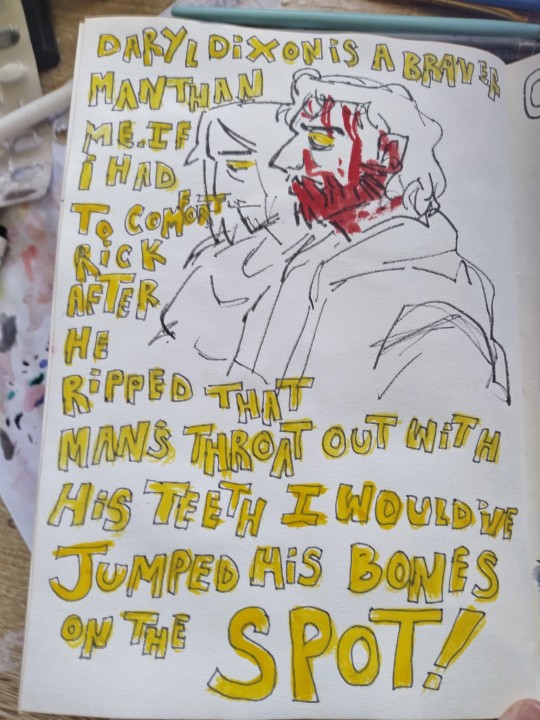 DARYL DIXON IS A BRAVER
MAN THAN
ME. IF
I HAD
TO COMFORT
RICK
AFTER
HE
RIPPED THAT
MAN'S THROAT OUT WITH
HIS TEETH I WOULD'VE
JUMPED HIS BONES
ON THE SPOT!